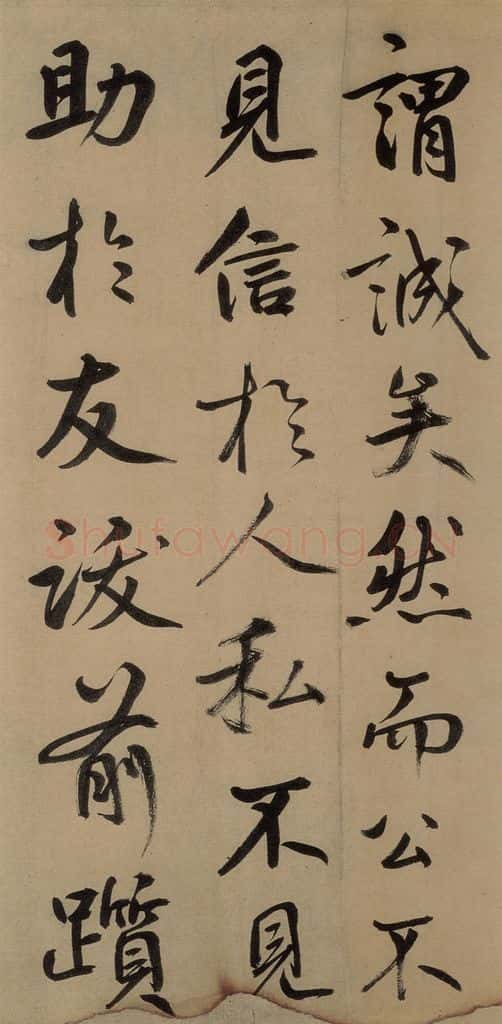 謂誠矣然而公不
見信於人私不見
助於友跋前躓
Shufawang.CN